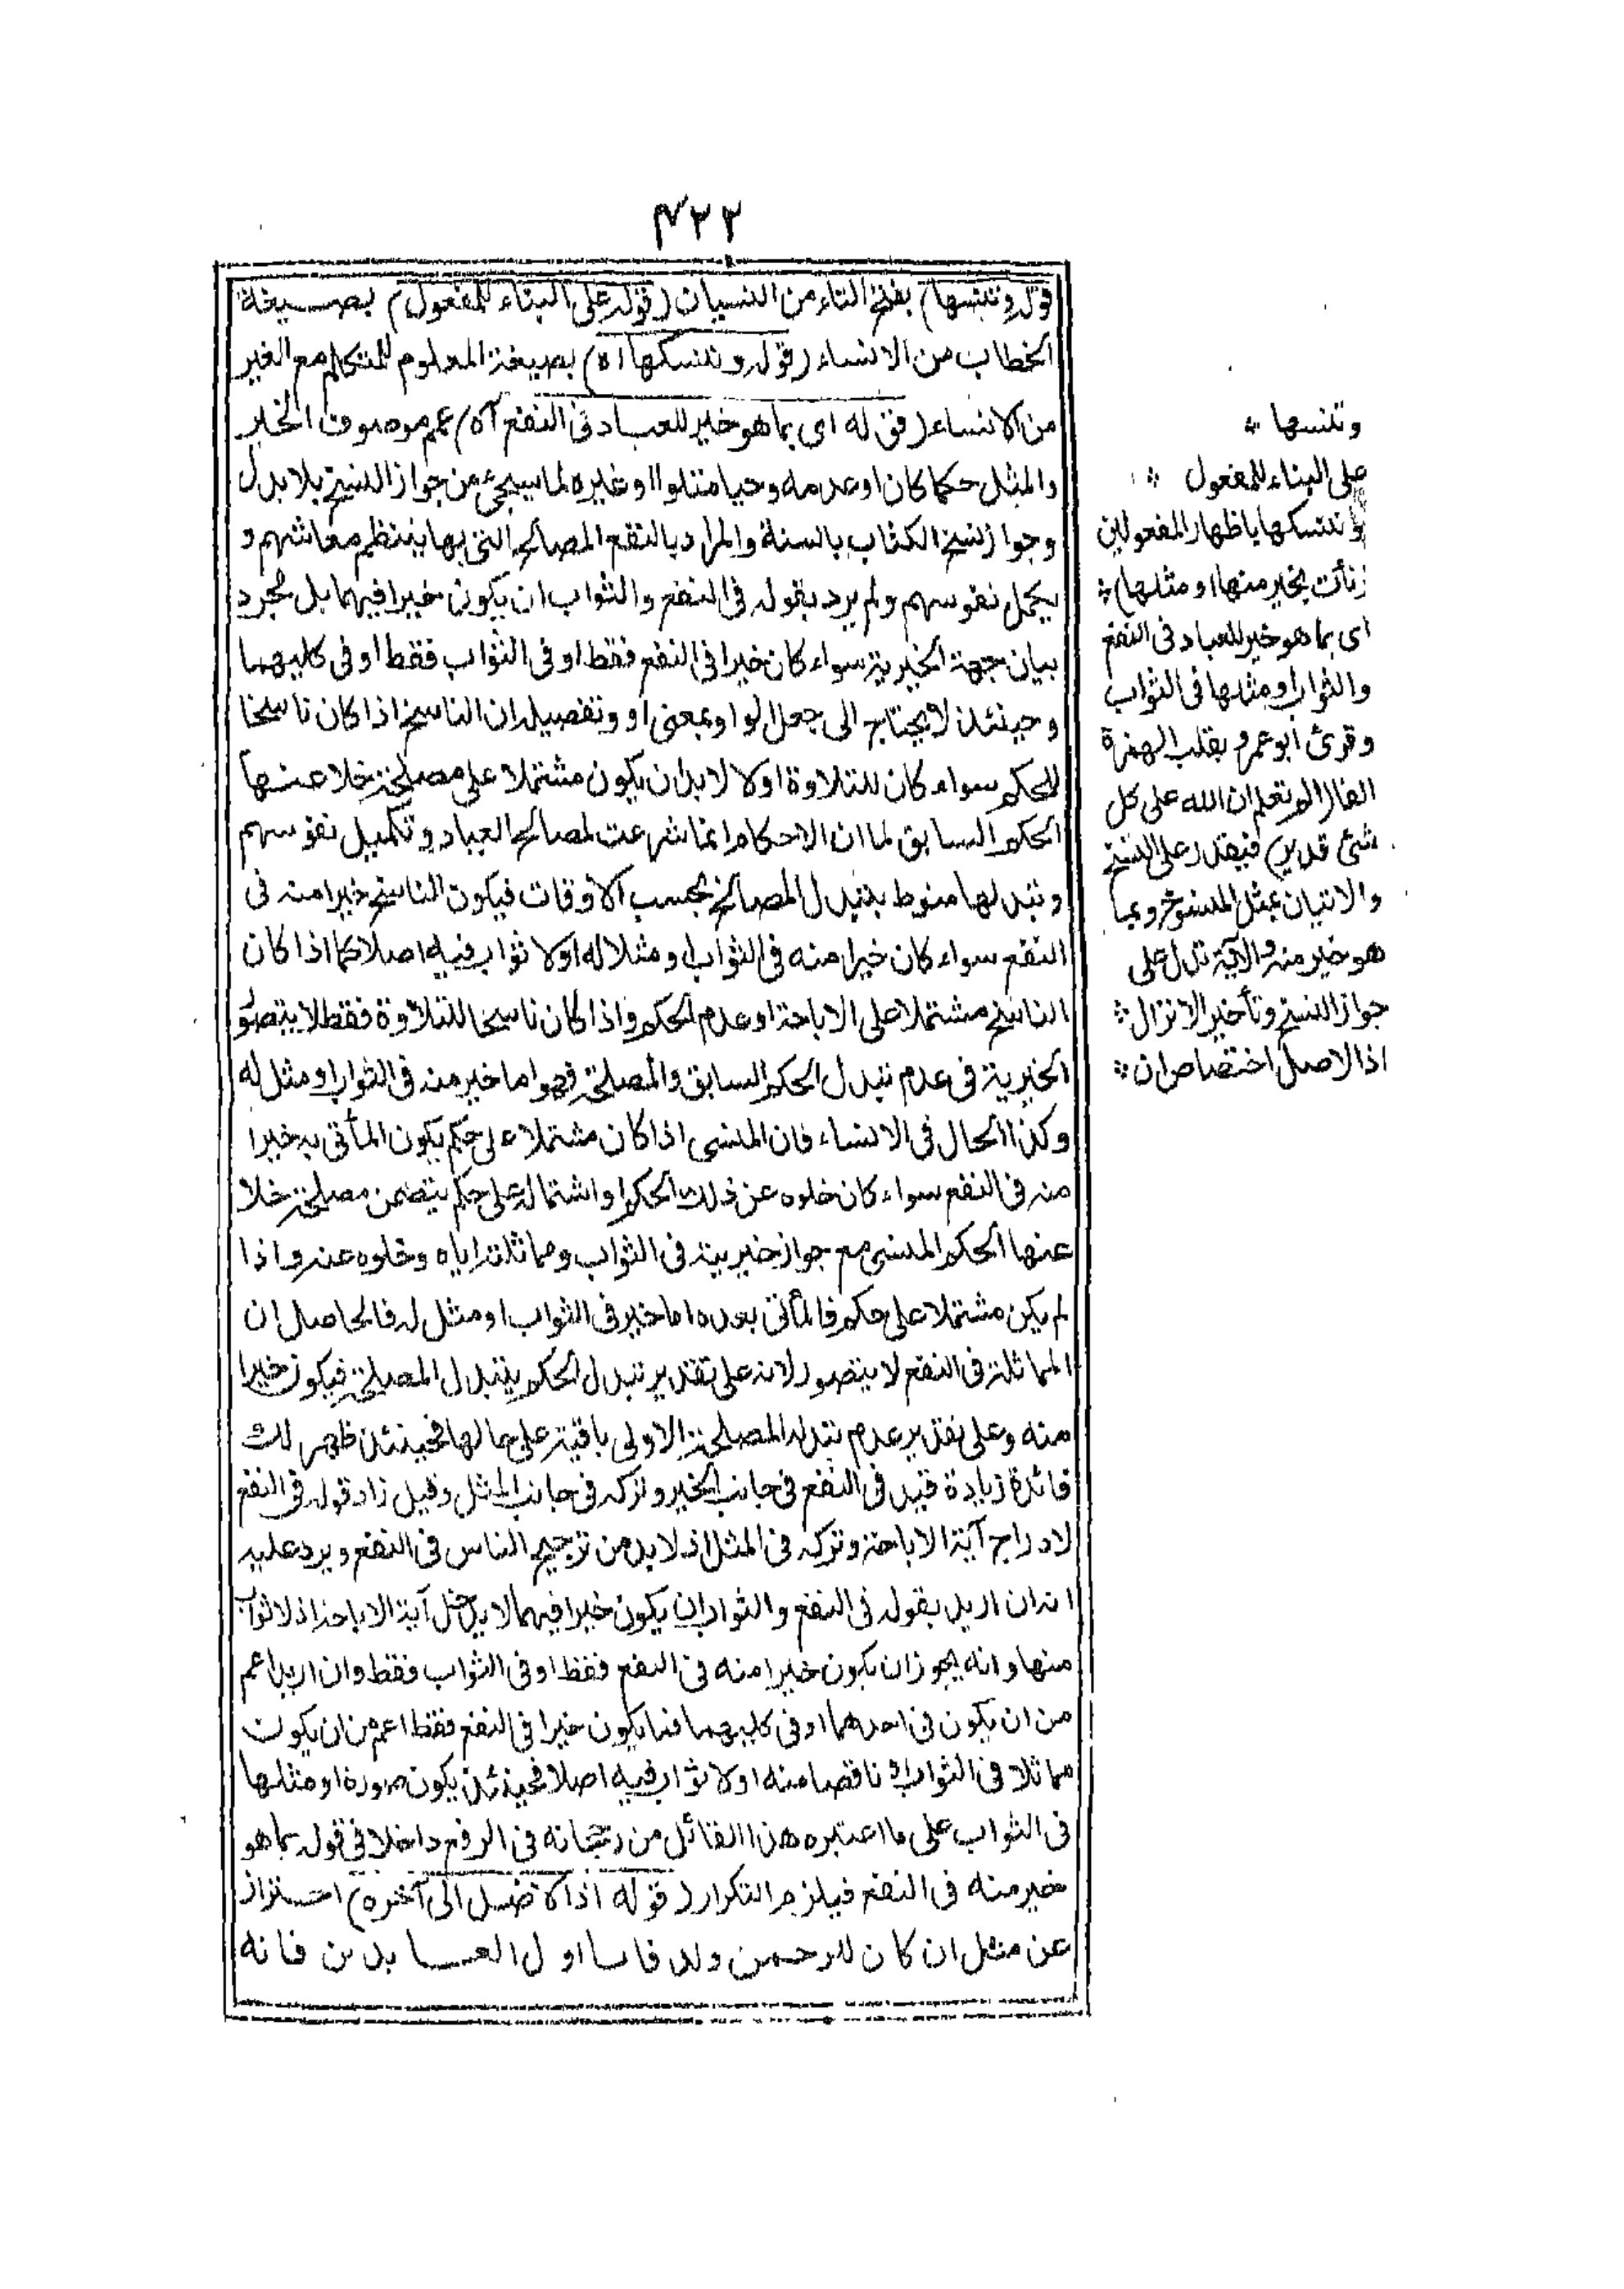 ٤٢٢
قوله وتنسها) بفتح التاء من النسيان (قوله على البناء للمفعول) بصيغة
الخطاب من الانساء (قوله وننسكها اه) بصيغة المعلوم للمتكلم مع الغير
من الانساء (قوله اى بما هو خير للعباد فى النفع آه) عمم موصوف الخير
والمثل حكما كان او عدمه وحيا متلوا او غيره لما سيجئ من جواز النسخ بلا بدل
وجواز نسخ الكتاب بالسنة والمراد بالنفع المصالح التى بها ينتظم معاشهم و
يكمل نفوسهم ولم يرد بقوله فى النفع والثواب ان يكون خيرا فيهما بل مجرد
بيان جهة الخيرية سواء كان خيرا فى النفع فقط او فى الثواب فقط او فى كليهما
وحينئذ لا يحتاج الى جعل الواو بمعنى او وتفصيله ان الناسخ اذا كان ناسخا
للحكم سواء كان للتلاوة او لا لا بد ان يكون مشتملا على مصلحة خلا عنها
الحكم السابق لما ان الاحكام انما شرعت لمصالح العباد وتكميل نفوسهم
وتبدلها منوط بتبدل المصالح بحسب الاوقات فيكون الناسخ خيرا منه فى
النفع سواء كان خيرا منه فى الثواب او مثلا له او لا ثواب فيه اصلا كما اذا كان
الناسخ مشتملا على الاباحة او عدم الحكم واذا كان ناسخا للتلاوة فقط لا يتصور
الخيرية فى عدم تبدل الحكم السابق والمصلحة فهو اما خير منه فى الثواب او مثل له
وكذا الحال فى الانساء فان المنسى اذا كان مشتملا على حكم يكون المأتى به خيرا
منه فى النفع سواء كان خلوه عن ذلك الحكم او اشتماله على حكم يتضمن مصلحة خلا
عنها الحكم المنسى مع جواز خيريته فى الثواب ومماثلته اياه وخلوه عنه واذا
لم يكن مشتملا على حكم فالمأتى بعده اما خير فى الثواب او مثل له فالحاصل ان
المماثلة فى النفع لا يتصور لانه على تقدير تبدل الحكم يتبدل المصلحة فيكون خيرا
منه وعلى تقدير عدم تبدله المصلحة الاولى باقية على حالها فحينئذ ظهر لك
فائدة زيادة قيد فى النفع فى جانب الخير وتركه فى جانب المثل وقيل زاد قوله فى النفع
لادراج آية الاباحة وتركه فى المثل اذ لا بد من ترجيح الناس فى النفع ويرد عليه
انه ان اريد بقوله فى النفع والثواب ان يكون خيرا فيهما لا يدخل آية الاباحة اذ لا ثواب
منها وانه يجوز ان يكون خيرا منه فى النفع فقط او فى الثواب فقط وان اريد اعم
من ان يكون فى احدهما او فى كليهما فما يكون خيرا فى النفع فقط اعم من ان يكون
مماثلا فى الثواب او ناقصا منه او لا ثواب فيه اصلا فحينئذ يكون صورة او مثلها
فى الثواب على ما اعتبره هذا القائل من رجحانه فى الرفع داخلا فى قوله بما هو
خير منه فى النفع فيلزم التكرار (قوله اذ الاصل الى آخره) احتراز
عن مثل ان كان للرحمن ولد فانا اول العابدين فانه
وتنسها
على البناء للمفعول
وننسكها باظهار المفعولين
(نأت بخير منها او مثلها)
اى بما هو خير للعباد فى النفع
والثواب او مثلها فى الثواب
وقرئ ابو عمرو بقلب الهمزة
الفا (الم تعلم ان الله على كل
شئ قدير) فيقدر على النسخ
والاتيان بمثل المنسوخ وبما
هو خير منه والآية تدل على
جواز النسخ وتأخير الانزال
اذ الاصل اختصاص ان